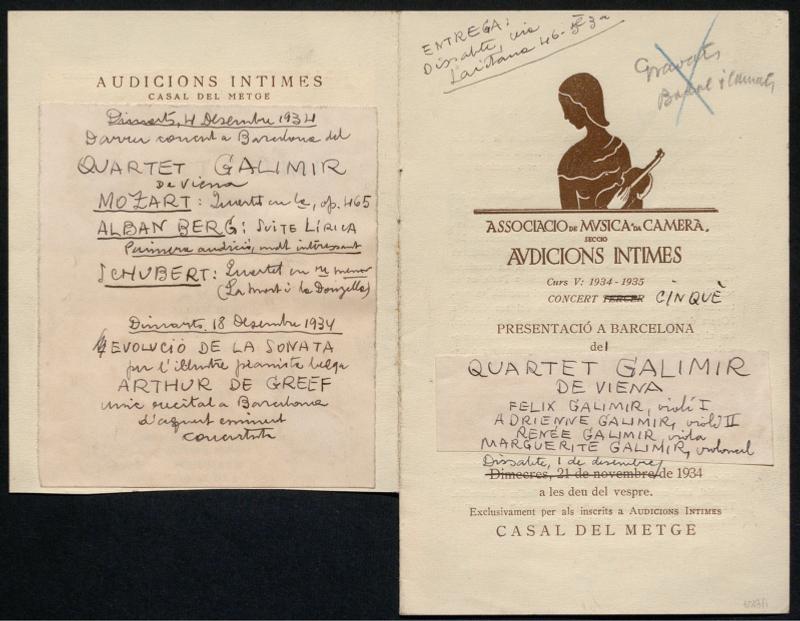 AUDICIONS INTIMES
CASAL DEL METGE
Dimarts, 4 Desembre 1934
Darrer concert a Barcelona del
QUARTET GALIMIR
de Viena
MOZART: Quartet en la, op. 465
ALBAN BERG: SUITE LÍRICA
Primera audició, molt interessant
SCHUBERT: Quartet en re menor
(La mort i la Donzella)
Dimarts 18 Desembre 1934
EVOLUCIÓ DE LA SONATA
per l'il·lustre pianista belga
ARTHUR DE GREEF
unic recital a Barcelona
d'aquest eminent
concertista
ENTREGA:
Dissabte, via
Laietana 46
3a
Gravats
ASSOCIACIO DE MVSICA DA CAMERA,
SECCIO
AVDICIONS INTIMES
Curs V: 1934-1935
CONCERT TERCER CINQUÈ
PRESENTACIÓ A BARCELONA
del
QUARTET GALIMIR
DE VIENA
FELIX GALIMIR, violí I
ADRIENNE GALIMIR, violí II
RENÉE GALIMIR, viola
MARGUERITE GALIMIR, violoncel
Dissabte, 1 de desembre
Dimecres, 21 de novembre de 1934
a les deu del vespre.
Exclusivament per als inscrits a AUDICIONS INTIMES
CASAL DEL METGE